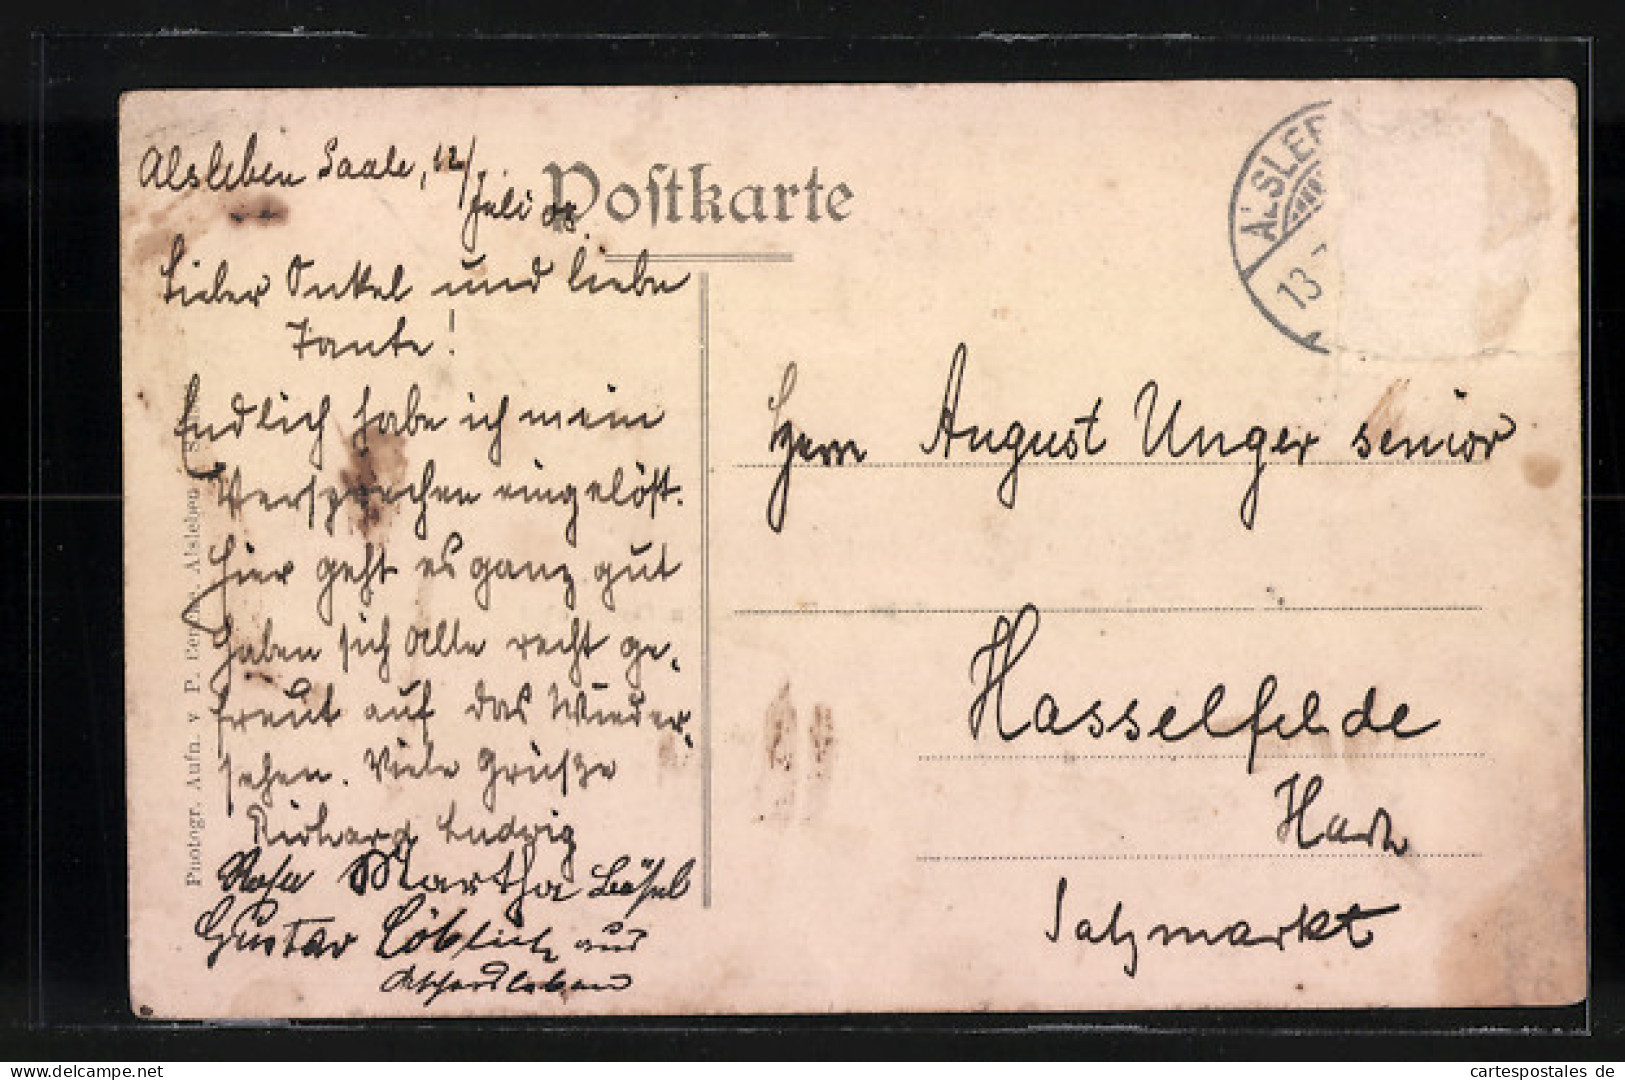 Alsleben Saale, 12/
Juli 08.
Postkarte
Lieber Onkel und liebe
Tante!
Endlich habe ich mein
Versprechen eingelöst.
Hier geht es ganz gut
haben sich Alle recht ge-
freut auf das Wieder-
sehen. Viele Grüße
Richard Ludwig
Rosa Martha
Gustav aus
Aschersleben
Photogr. Aufn. v. P. Alsleben
ALSLEB
13
Herrn August Unger senior
Hasselfelde
Harz
Salzmarkt
www.cartespostales.de